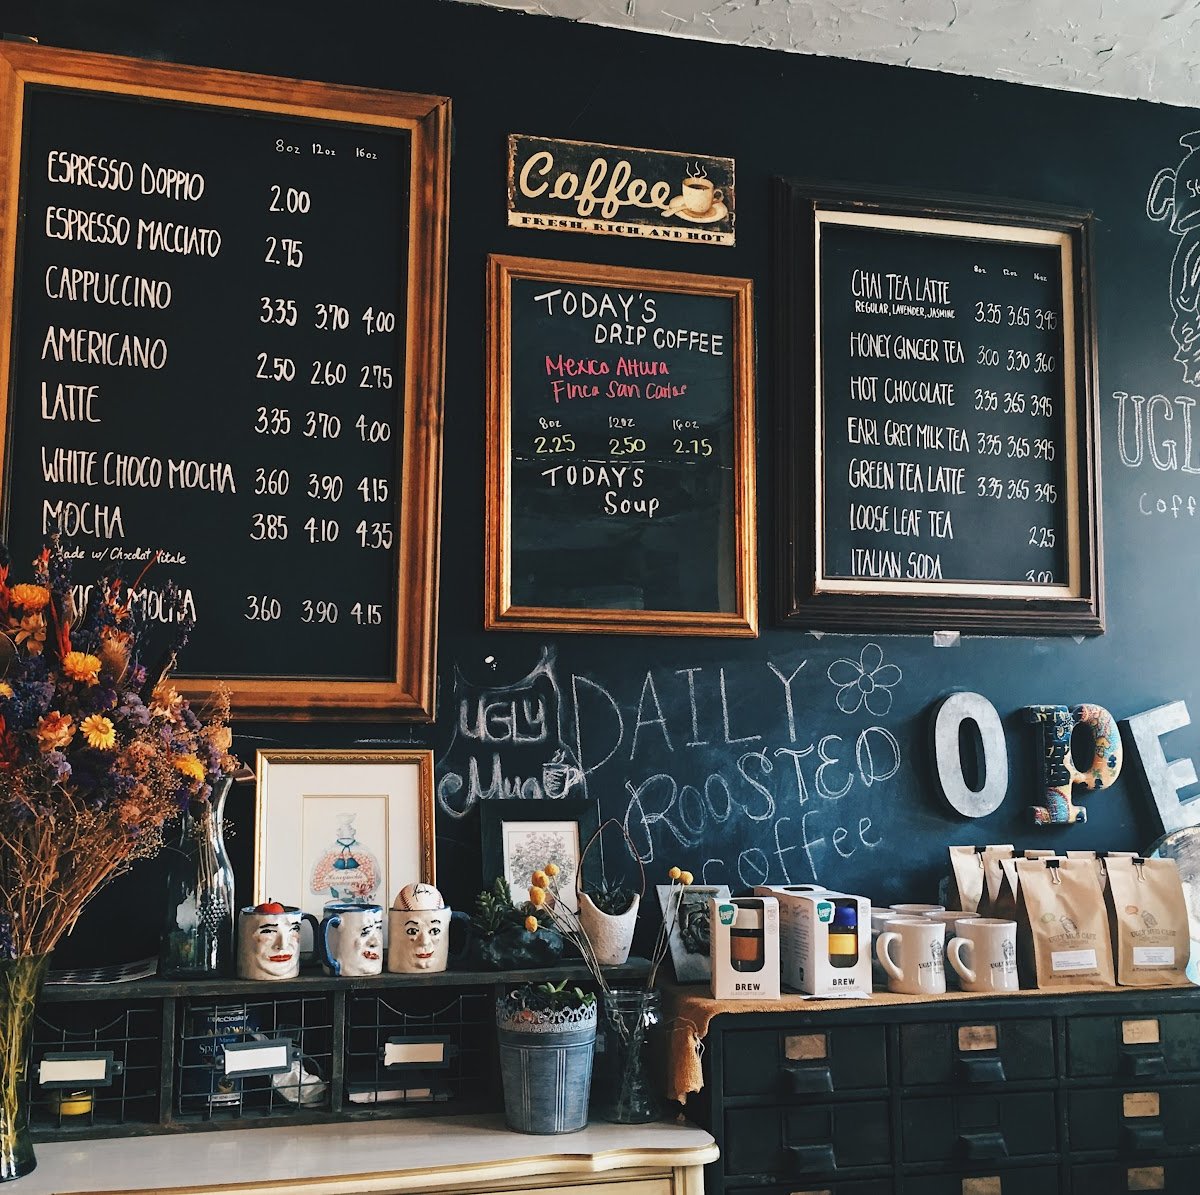 8oz 12oz 16oz
ESPRESSO DOPPIO 2.00
ESPRESSO MACCIATO 2.75
CAPPUCCINO 3.35 3.70 4.00
AMERICANO 2.50 2.60 2.75
LATTE 3.35 3.70 4.00
WHITE CHOCO MOCHA 3.60 3.90 4.15
MOCHA 3.85 4.10 4.35
Made w/ Chocolat Vitale
MOCHA 3.60 3.90 4.15
Coffee
FRESH, RICH, AND HOT
TODAY'S
DRIP COFFEE
Mexico Altura
Finca San Carlos
8oz 12oz 16oz
2.25 2.50 2.75
TODAY'S
Soup
8oz 12oz 16oz
CHAI TEA LATTE 3.35 3.65 3.95
REGULAR, LAVENDER, JASMINE
HONEY GINGER TEA 3.00 3.30 3.60
HOT CHOCOLATE 3.35 3.65 3.95
EARL GREY MILK TEA 3.35 3.65 3.95
GREEN TEA LATTE 3.35 3.65 3.95
LOOSE LEAF TEA 2.25
ITALIAN SODA 3.00
UGL
Coff
UGLY
Mug
DAILY
ROOSTED
coffee
OPE
BREW
BREW
UGLY MUG CAFE
UGLY MUG CAFE